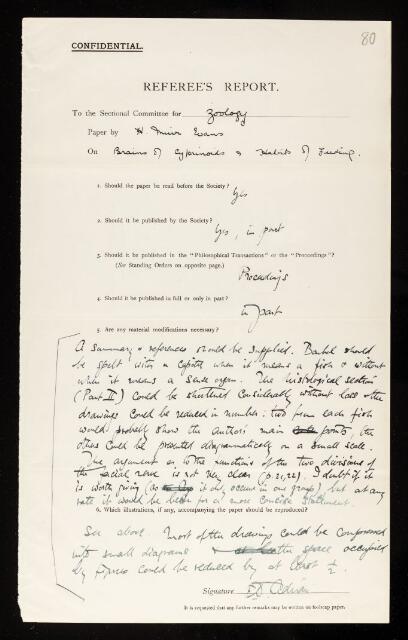 80
CONFIDENTIAL.
REFEREE'S REPORT.
To the Sectional Committee for Zoology
Paper by H. Muir Evans
On Brains of Cyprinoids & Habits of Feeding.
1. Should the paper be read before the Society? Yes
2. Should it be published by the Society? Yes, in part
3. Should it be published in the "Philosophical Transactions" or the "Proceedings"?
(See Standing Orders on opposite page.)
Proceedings
4. Should it be published in full or only in part?
in part
5. Are any material modifications necessary?
A summary & references should be supplied. Barbel should
be spelt with a capital when it means a fish & without
when it means a sense organ. The histological section
(Part II) could be shortened considerably without loss & the
drawings could be reduced in number: two from each fish
would probably show the authors main points, the
others could be presented diagrammatically on a small scale.
The argument as to the functions of the two divisions of
the facial lobe is not very clear (p 21, 22). I doubt if it
is worth giving (as it only occurs in one group), but at any
rate it would be better for a more concise statement.
6. Which illustrations, if any, accompanying the paper should be reproduced?
See above. Most of the drawings could be compressed
into small diagrams & the space occupied
by figures could be reduced by at least ½.
Signature ED Adrian
It is requested that any further remarks may be written on foolscap paper.